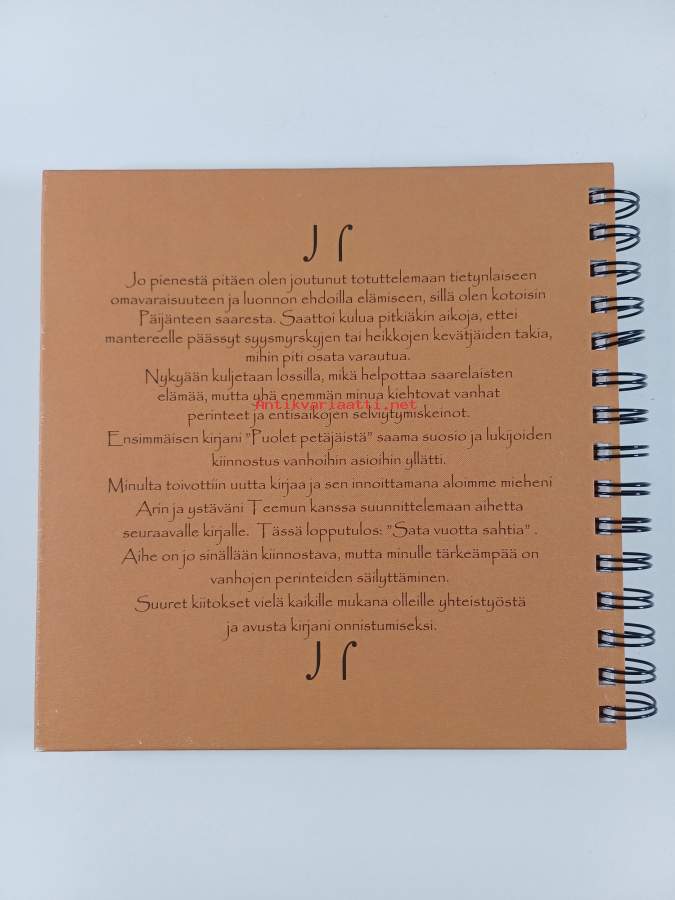 J ſ
Jo pienestä pitäen olen joutunut totuttelemaan tietynlaiseen
omavaraisuuteen ja luonnon ehdoilla elämiseen, sillä olen kotoisin
Päijänteen saaresta. Saattoi kulua pitkiäkin aikoja, ettei
mantereelle päässyt syysmyrskyjen tai heikkojen kevätjäiden takia,
mihin piti osata varautua.
Nykyään kuljetaan lossilla, mikä helpottaa saarelaisten
elämää, mutta yhä enemmän minua kiehtovat vanhat
Antikvariaatti.net
perinteet ja entisaikojen selviytymiskeinot.
Ensimmäisen kirjani "Puolet petäjäistä" saama suosio ja lukijoiden
kiinnostus vanhoihin asioihin yllätti.
Minulta toivottiin uutta kirjaa ja sen innoittamana aloimme mieheni
Arin ja ystäväni Teemun kanssa suunnittelemaan aihetta
seuraavalle kirjalle. Tässä lopputulos: "Sata vuotta sahtia" .
Aihe on jo sinällään kiinnostava, mutta minulle tärkeämpää on
vanhojen perinteiden säilyttäminen.
Suuret kiitokset vielä kaikille mukana olleille yhteistyöstä
ja avusta kirjani onnistumiseksi.
J ſ